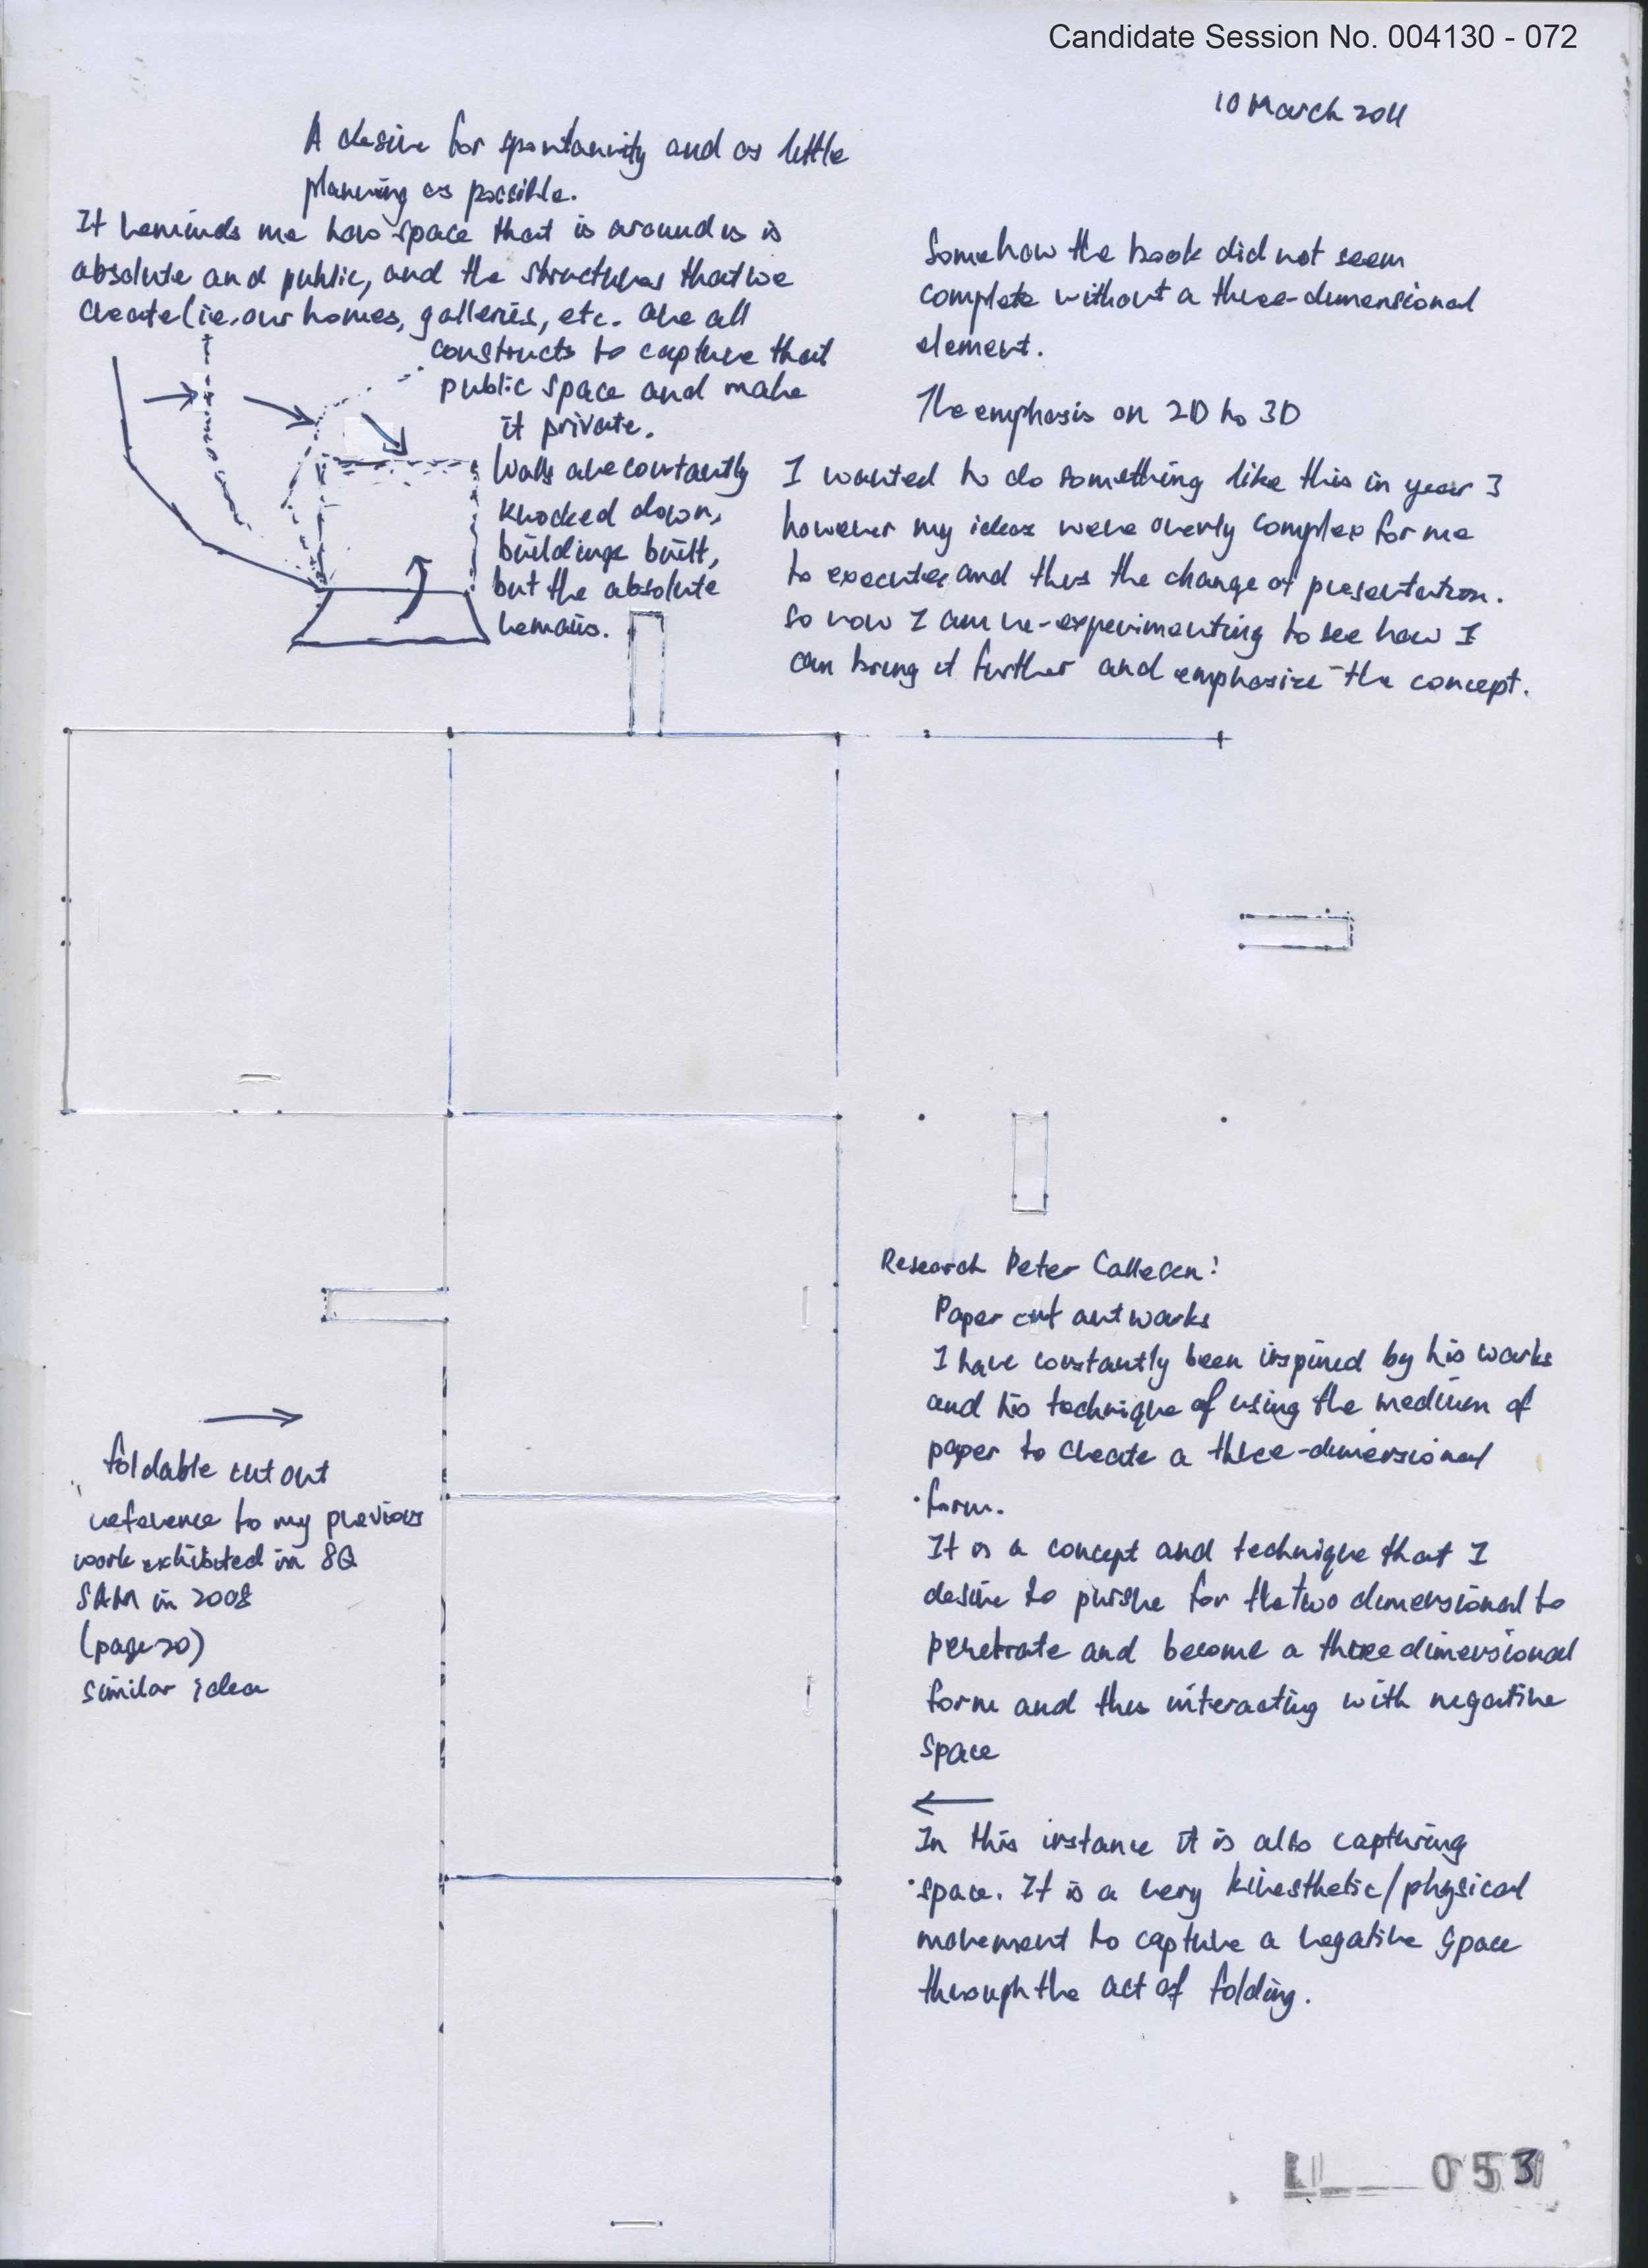 Candidate Session No. 004130 - 072
10 March 2011
A desire for spontaneity and as little
planning as possible.
It reminds me how space that is around us is
absolute and public, and the structures that we
create (ie. our homes, galleries, etc. are all
constructs to capture that
public space and make
it private.
Walls are constantly
knocked down,
buildings built,
but the absolute
remains.
Somehow the book did not seem
complete without a three-dimensional
element.
The emphasis on 2D to 3D
I wanted to do something like this in year 3
however my ideas were overly complex for me
to execute, and thus the change of presentation.
So now I am re-experimenting to see how I
can bring it further and emphasize the concept.
Research Peter Callesen:
Paper cut artworks
I have constantly been inspired by his works
and his technique of using the medium of
paper to create a three-dimensional
form.
It is a concept and technique that I
desire to pursue for the two dimensional to
penetrate and become a three dimensional
form and thus interacting with negative
space
foldable cut out
reference to my previous
work exhibited in 8Q
SAM in 2008
(page 20)
similar idea
In this instance it is also capturing
space. It is a very kinesthetic/physical
movement to capture a negative space
through the act of folding.
053